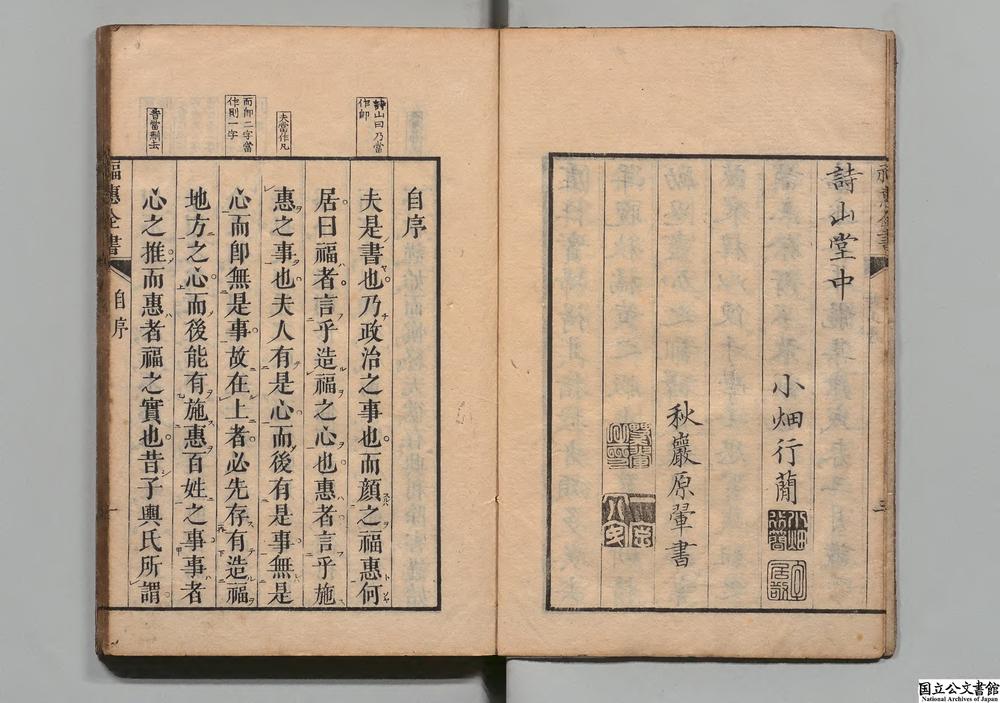 詩山堂中
小畑行蕳
秋巖原翬書
三
福惠全書
自序
一
詩山曰乃當
作即
夫當作凡
而即二字當
作則一字
者當刪去
自序
夫是書也乃政治之事也而顔之福惠何
居曰福者言乎造福之心也惠者言乎施
惠之事也夫人有是心而後有是事無是
心而卽無是事故在上者必先存有造福
地方之心而後能有施惠百姓之事事者
心之推而惠者福之實也昔子輿氏所謂
国立公文書館
National Archives of Japan